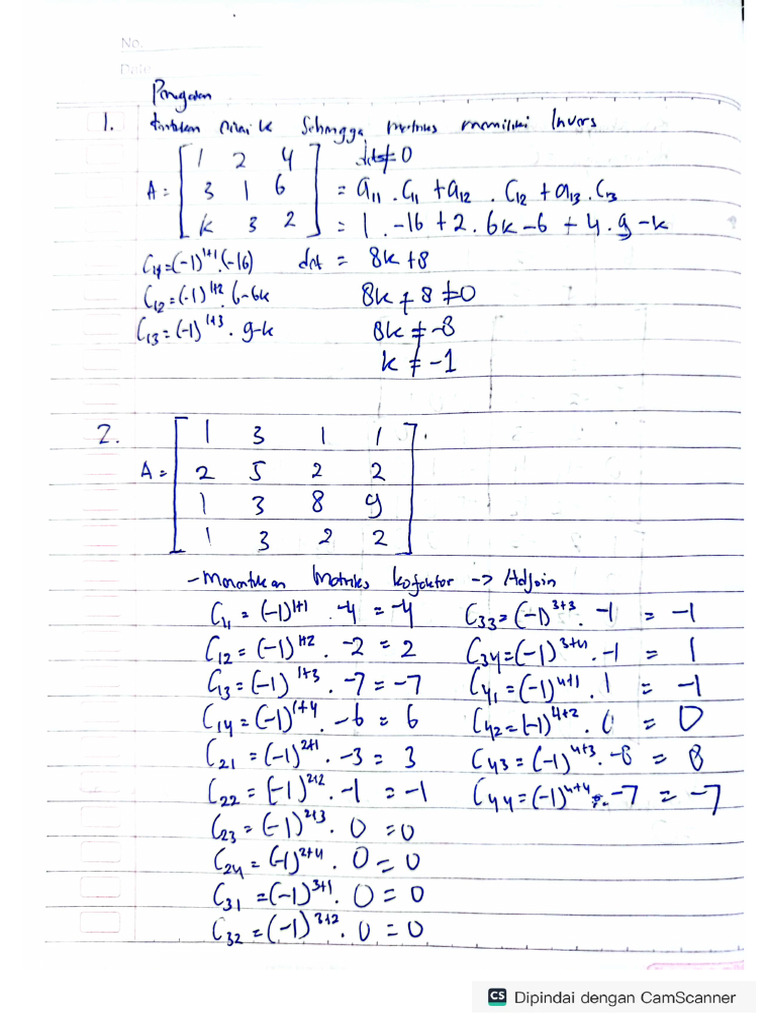 No.
Date
1. tentukan nilai k Sehingga matriks memiliki Invers
A = [ 1 2 4 ] det ≠ 0
[ 3 1 6 ] = a11 . C11 + a12 . C12 + a13 . C13
[ k 3 2 ] = 1 . -16 + 2 . 6k - 6 + 4 . 9 - k
C11 = (-1)^1+1 . (-16) det = 8k + 8
C12 = (-1)^1+2 . 6 - 6k 8k + 8 ≠ 0
C13 = (-1)^1+3 . 9 - k 8k ≠ -8
k ≠ -1
2. [ 1 3 1 1 ] .
A = [ 2 5 2 2 ]
[ 1 3 8 9 ]
[ 1 3 2 2 ]
- Menentukan Matriks kofaktor -> Adjoin
C11 = (-1)^1+1 . -4 = -4
C12 = (-1)^1+2 . -2 = 2
C13 = (-1)^1+3 . -7 = -7
C14 = (-1)^1+4 . -6 = 6
C21 = (-1)^2+1 . -3 = 3
C22 = (-1)^2+2 . -1 = -1
C23 = (-1)^2+3 . 0 = 0
C24 = (-1)^2+4 . 0 = 0
C31 = (-1)^3+1 . 0 = 0
C32 = (-1)^3+2 . 0 = 0
C33 = (-1)^3+3 . -1 = -1
C34 = (-1)^3+4 . -1 = 1
C41 = (-1)^4+1 . 1 = -1
C42 = (-1)^4+2 . 0 = 0
C43 = (-1)^4+3 . -8 = 8
C44 = (-1)^4+4 . -7 = -7
CS Dipindai dengan CamScanner